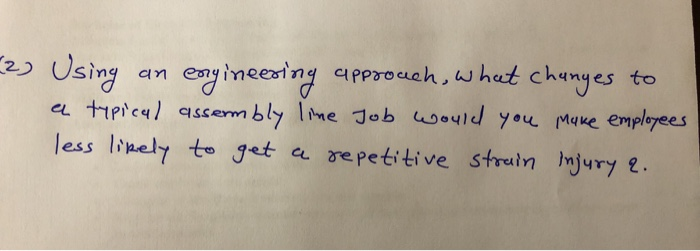 (2) Using an engineering approach, what changes to
a typical assembly line Job would you make employees
less likely to get a repetitive strain injury ?.